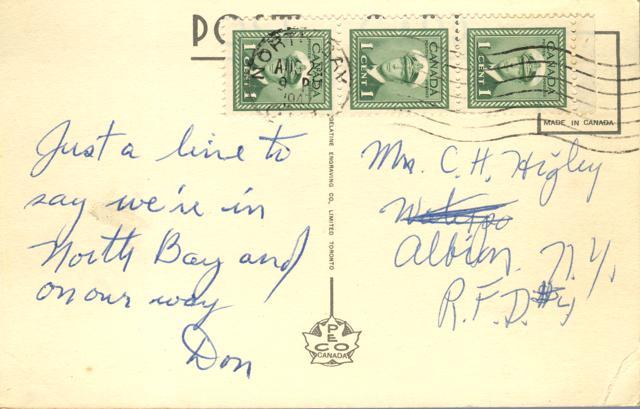 CANADA
1 CENT 1
CANADA
1 CENT 1
CANADA
1 CENT 1
NORTH BAY
AUG
MADE IN CANADA
Just a line to
say we're in
North Bay and
on our way
Don
GELATINE ENGRAVING CO., LIMITED TORONTO
PECO
CANADA
Mrs. C. H. Higley
Albion, N.Y.
R.F.D. #4